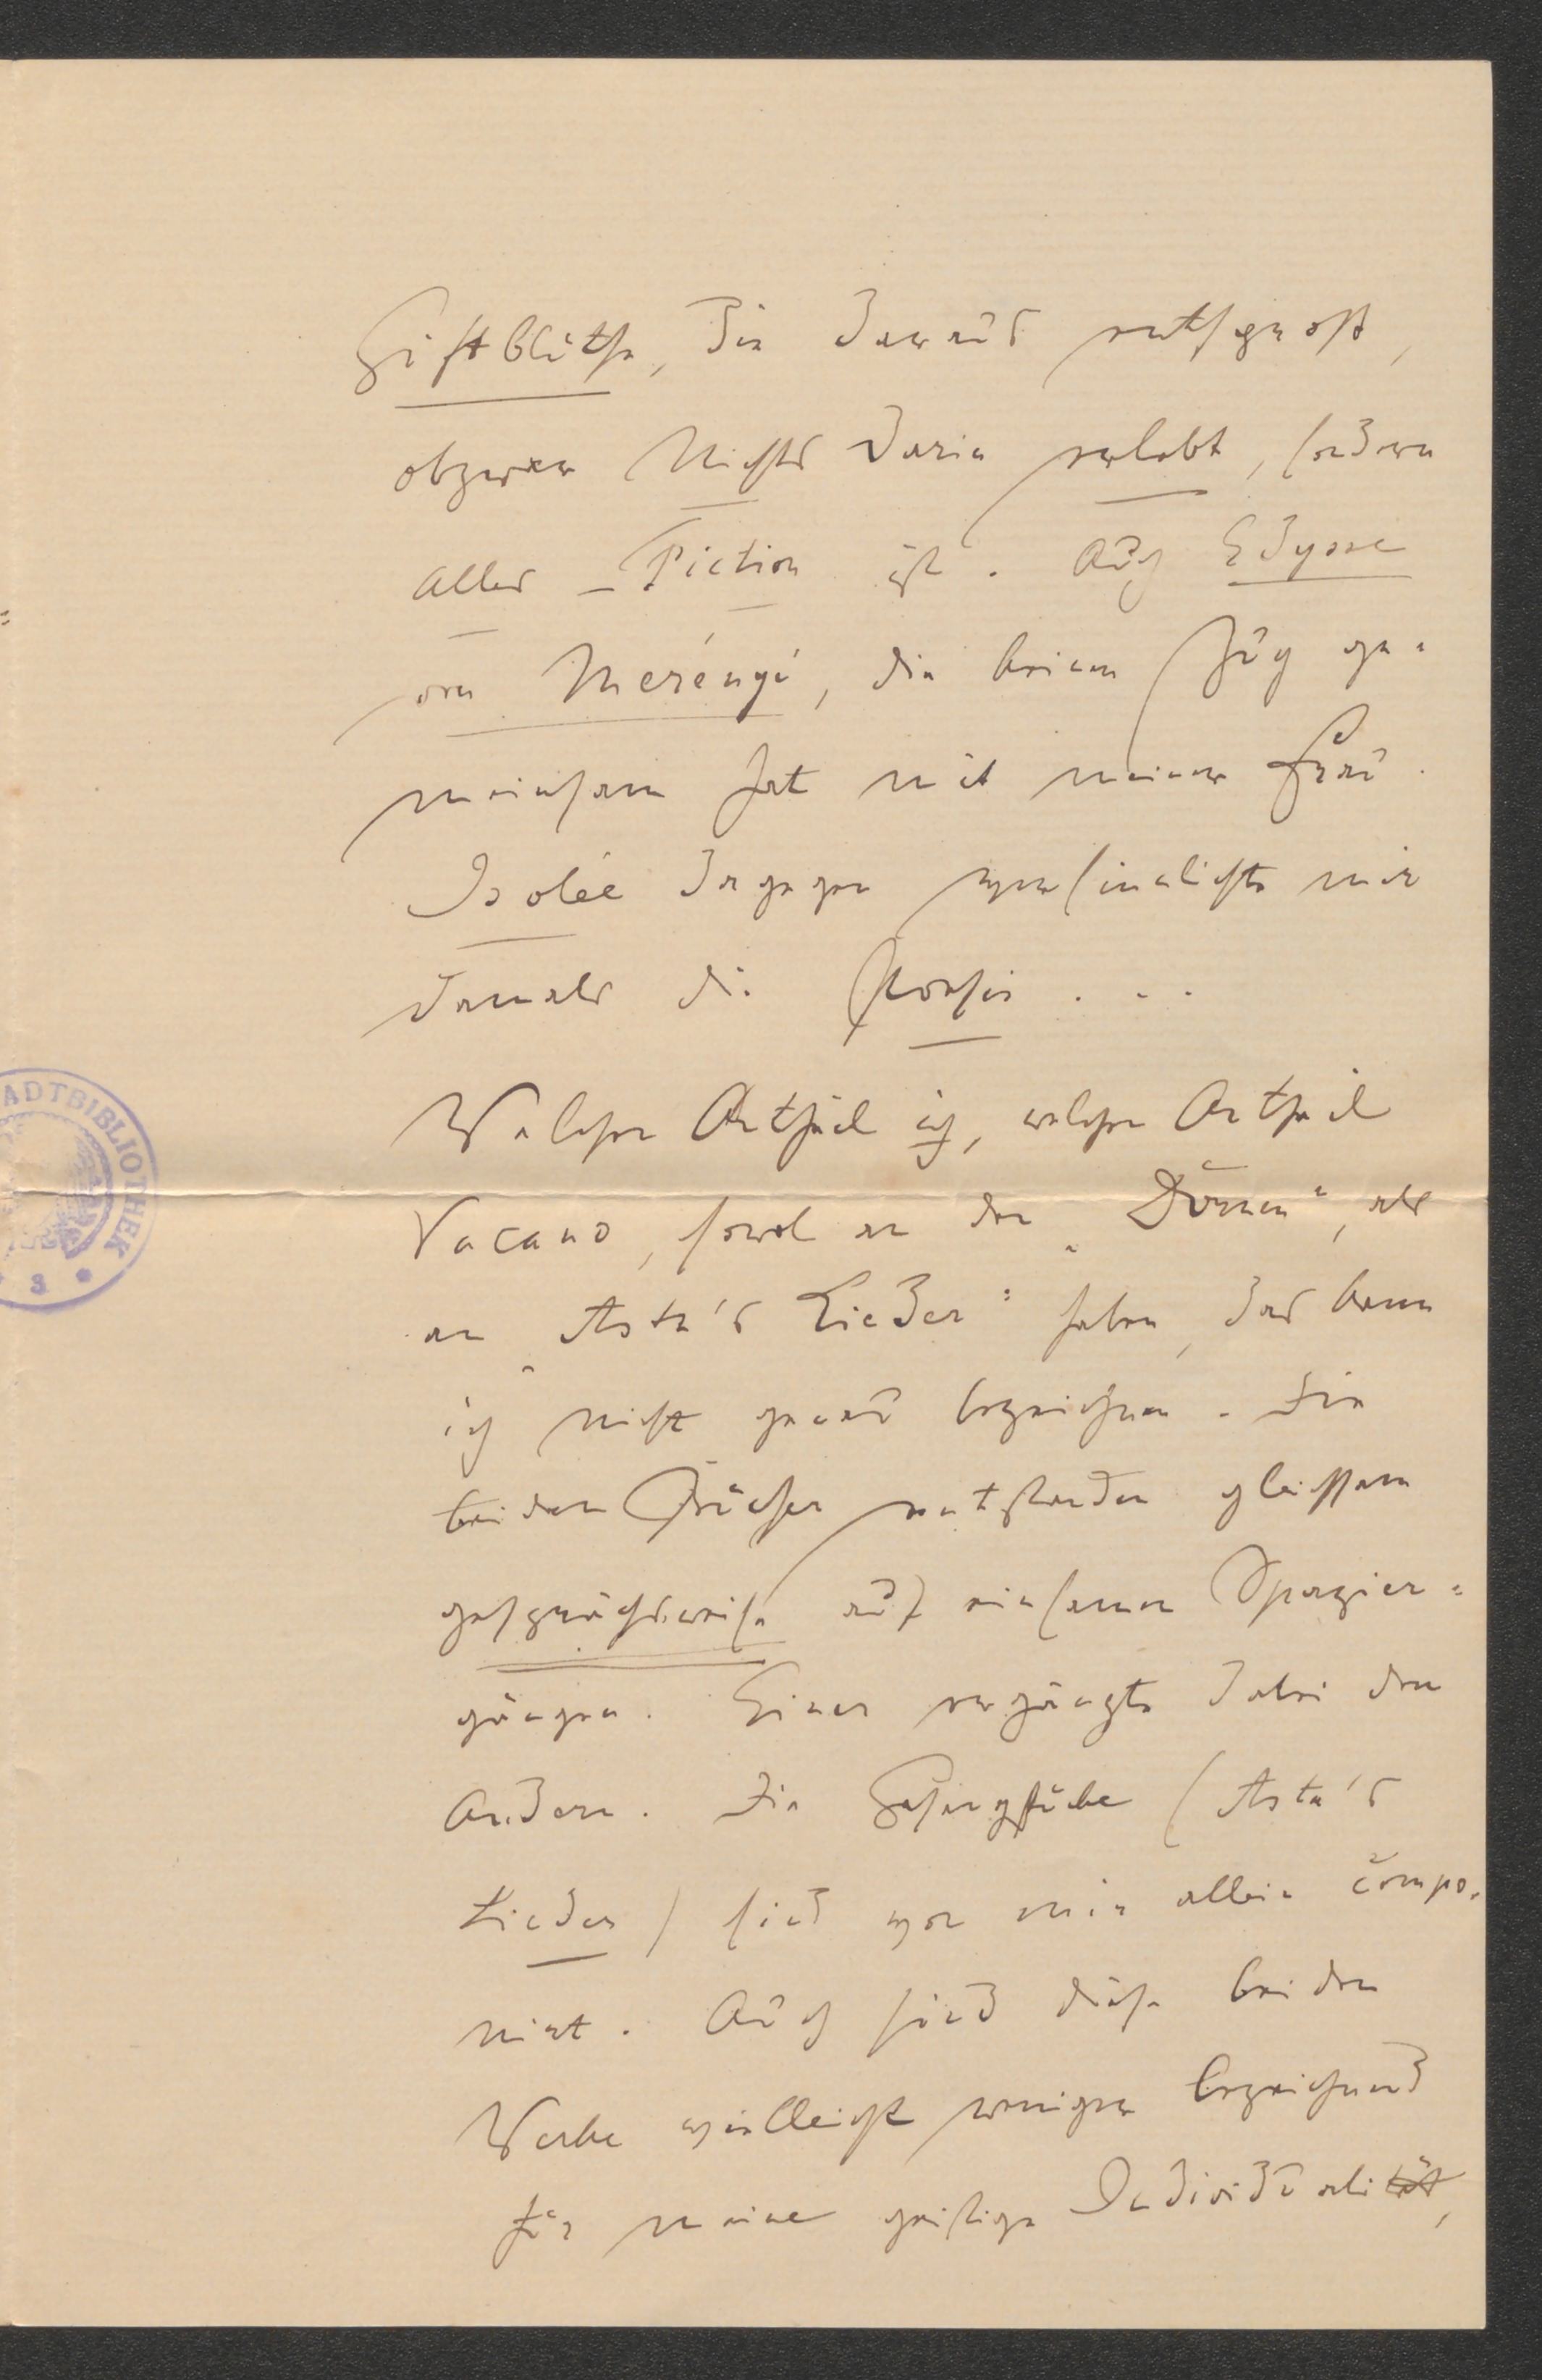 Giftblüthe, die daraus entsproßt,
obzwar Nichts darin erlebt, sondern
alles – Fiction ist. Auch Edyne
von Merényi, die keinen Zug ge-
meinsam hat mit meiner Frau.
Isolée dagegen versinnlichte mir
damals die Poesie . . .
Welchen Antheil ich, welchen Antheil
Vacano, sowol an den „Dornen“, als
an „Asta's Lieder“ haben, das kann
ich nicht genau bezeichnen. Die
beiden Bücher entstanden gleichsam
gesprächsweise auf einsamen Spazier-
gängen. Einer ergänzte dabei den
Andern. Die Gesangstücke (Asta's
Lieder) sind von mir allein compo-
nirt. Auch sind diese beiden
Werke vielleicht weniger bezeichnend
für meine geistige Individualität,
STADTBIBLIOTHEK